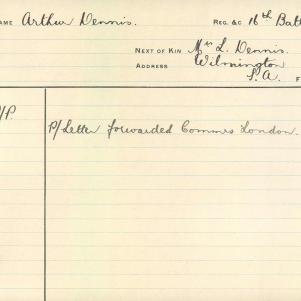 AME Arthur Dennis. REG. &C 16th Batt
NEXT OF KIN Mrs L. Dennis.
ADDRESS Wilmington
S. A. F
/P. P/Letter forwarded Commrs London.